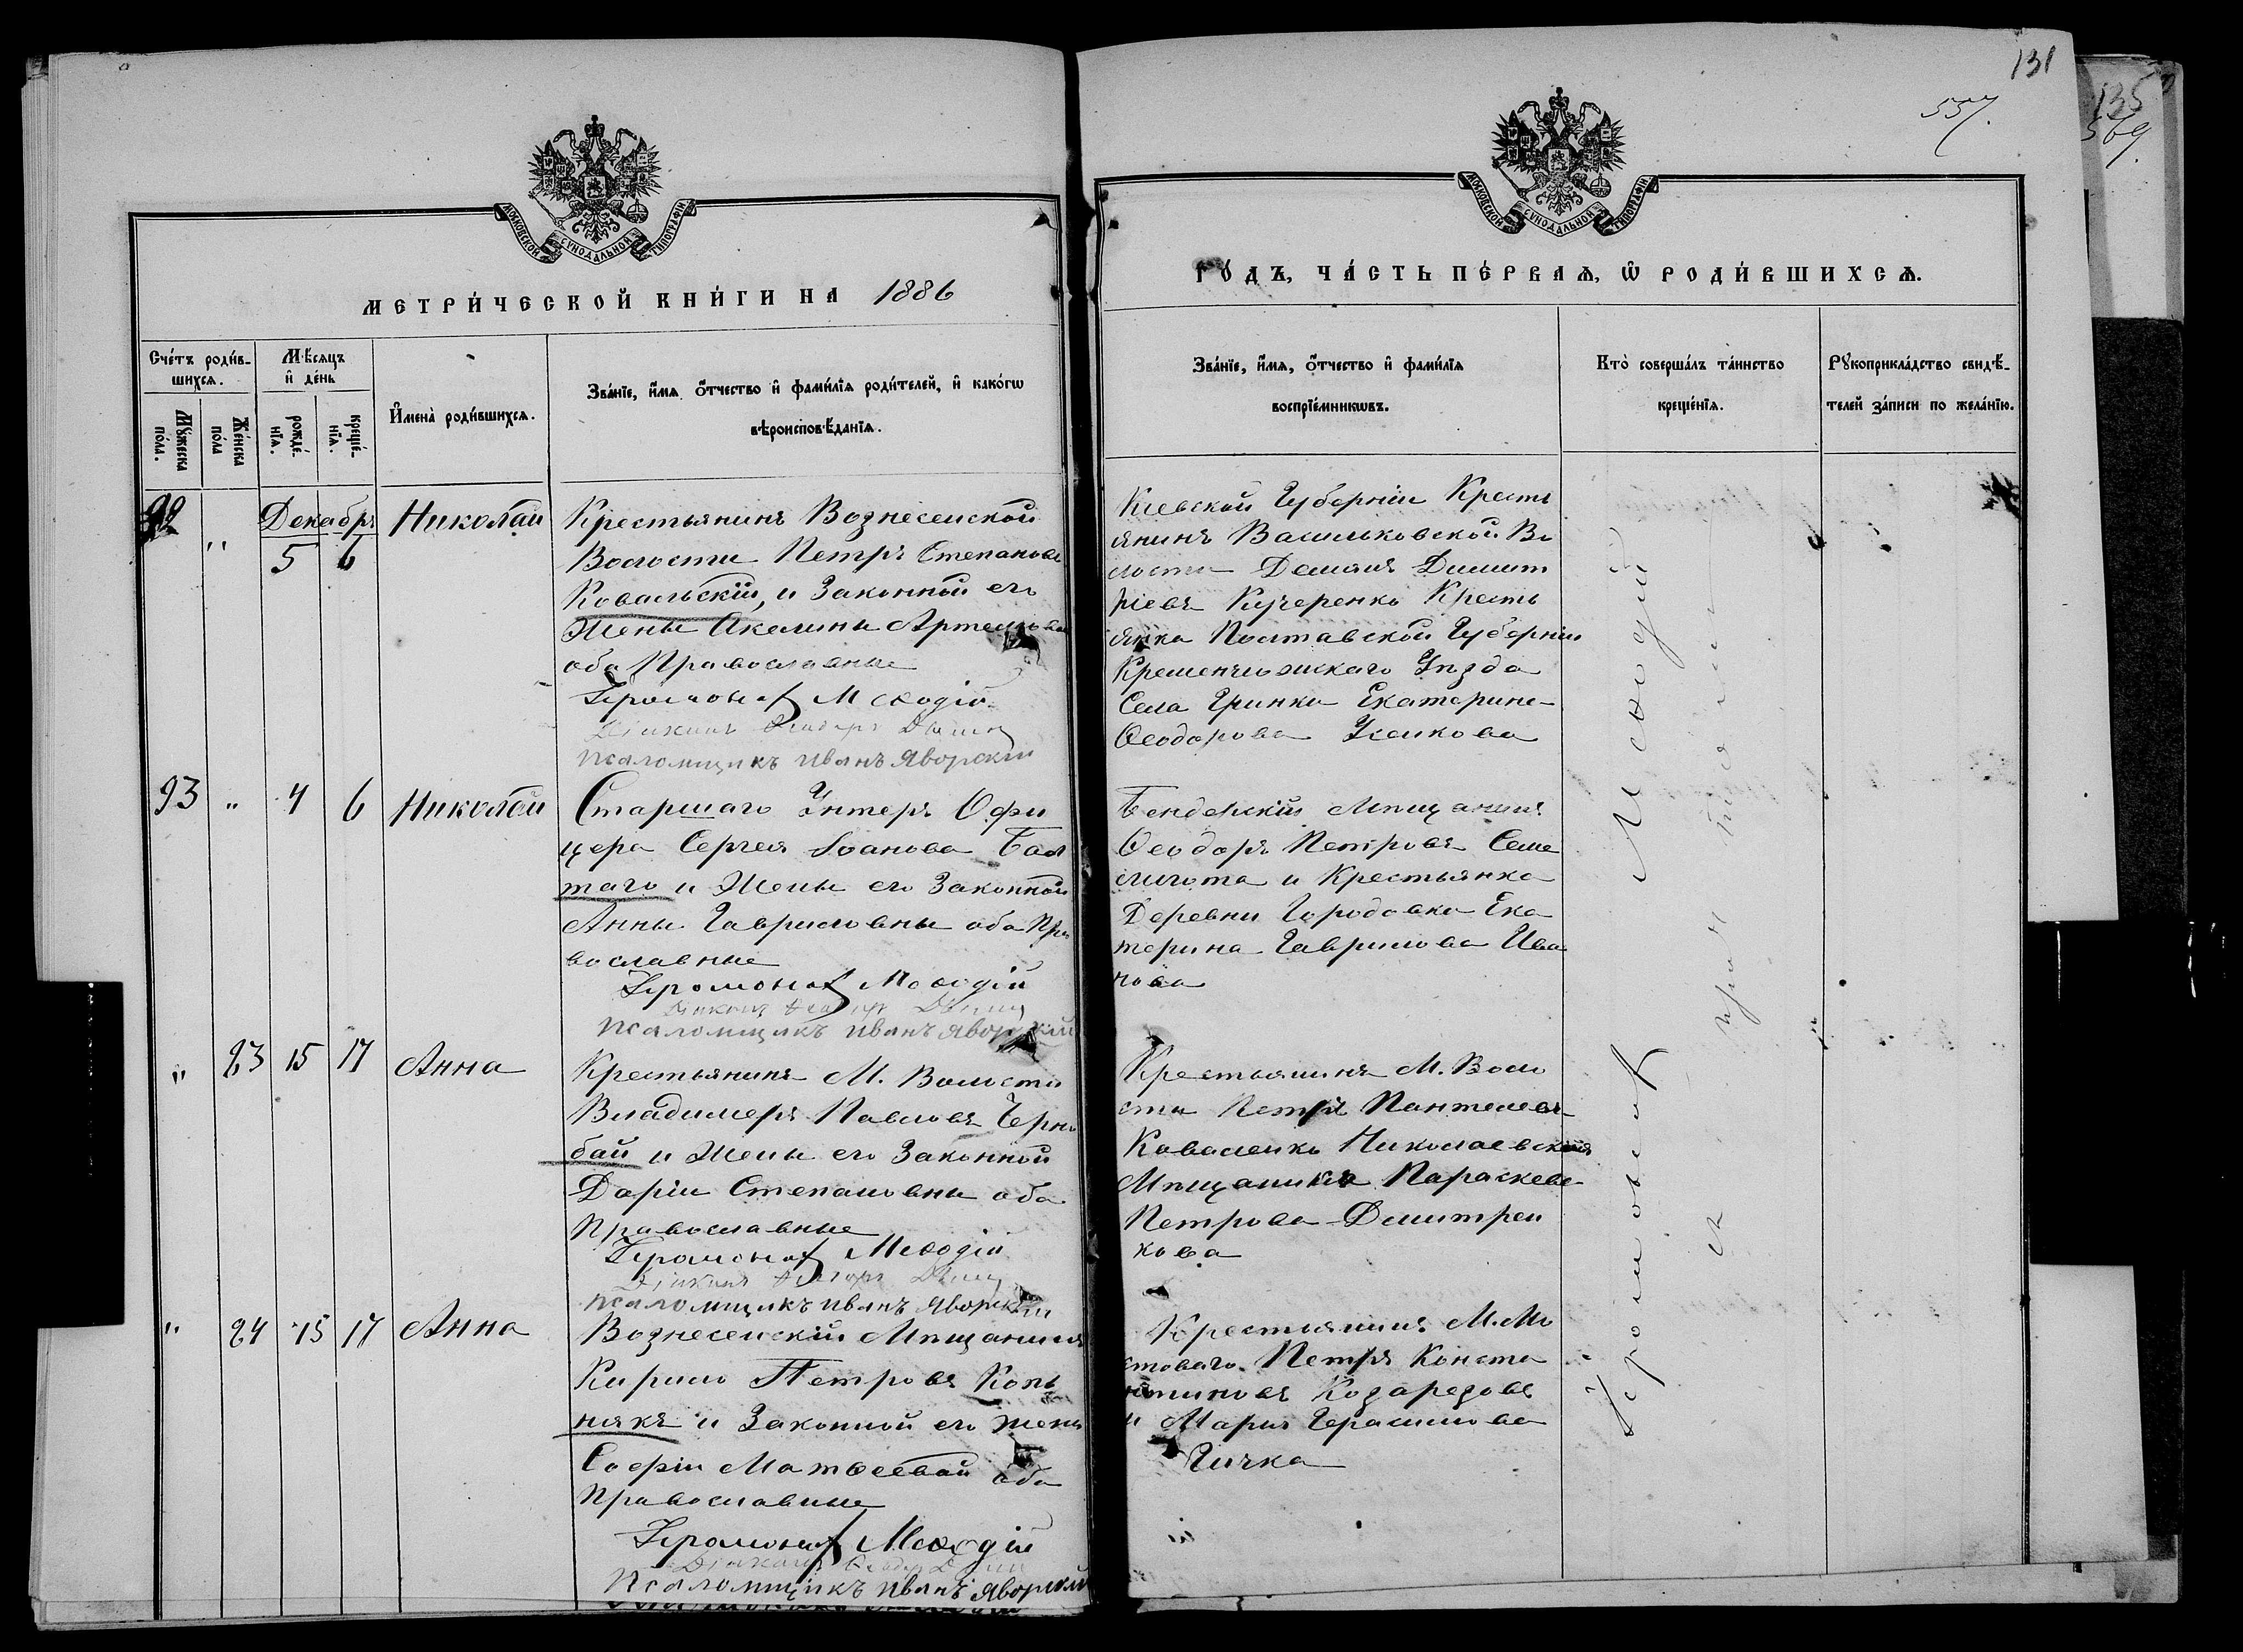 131
557.
135
569.
МОСКОВСКОЙ СѴНОДАЛЬНОЙ ТИПОГРАФІИ
МОСКОВСКОЙ СѴНОДАЛЬНОЙ ТИПОГРАФІИ
МЕТРИ́ЧЕСКОЙ КНИ́ГИ НА 1886
ГО́ДЪ, ЧА́СТЬ ПЕ́РВАѦ, Ѡ҆ РОДИ́ВШИХСѦ.
Сче́тъ роди́в-
шихсѧ.
Мꙋ́жеска
по́ла.
Же́нска
по́ла
Мѣ́сяцъ
и҆ де́нь
рожде́-
нїѧ.
креще́-
нїѧ.
И҆мена̀ роди́вшихсѧ.
Зва́нїе, и҆́мѧ ѻ҆́тчество и҆ фами́лїѧ роди́телей, и҆ како́гѡ
вѣроисповѣ́данїѧ.
Зва́нїе, и҆́мѧ, ѻ҆́тчество и҆ фами́лїѧ
воспрїе́мникѡвъ.
Кто̀ соверша́лъ та́инство
креще́нїѧ.
Рꙋкоприкла́дство свидѣ́-
телей за́писи по жела́нїю.
92 " Декабрь
5 6
Николай
Крестьянинъ Вознесенской
Волости Петръ Степановъ
Ковальскій, и Законной его
Жены Акелины Артемова
оба Православные
Іеромонах Меѳодій
Псаломщикъ Иванъ Яворскій
Кіевской Губерніи Кресть
янинъ Васильковской Во
лости Демянъ Димит
ріевъ Кучеренко Кресть
янка Полтавской Губерніи
Кременчюжскаго Уѣзда
Села Гринки Екатерина
Ѳеодорова Усикова
93 " 4 6 Николай
Старшаго Унтеръ Офи
цера Сергея Іванова Бал
таго и Жены его Законной
Анны Гавриловны оба Пра
вославные
Іеромонах Меѳодій
Псаломщикъ Иванъ Яворскій
Бендерскій Мѣщанинъ
Ѳеодоръ Петровъ Семе
лигота и Крестьянка
Деревни Городовка Ека
терина Гаврилова Ива
нова
" 23 15 17 Анна
Крестьянинъ М. Волости
Владимеръ Павловъ Черно
бай и Жены его Законной
Даріи Степановны оба
Православные
Іеромонах Меѳодій
Псаломщикъ Иванъ Яворскій
Крестьянинъ М. Воло
сти Петръ Пантелеевъ
Коваленко Николаевская
Мѣщанка Параскева
Петрова Димитрен
кова
" 24 15 17 Анна
Вознесенскій Мѣщанинъ
Кирило Петровъ Копь
някъ и Законной его жены
Софіи Матѳеевой оба
Православные
Іеромонах Меѳодій
Псаломщикъ Иванъ Яворскій
Крестьянинъ М. Мо
стоваго Петръ Конста
нтиновъ Козаредовъ
и Марія Герасимова
Гичка
Іеромонах Меѳодій